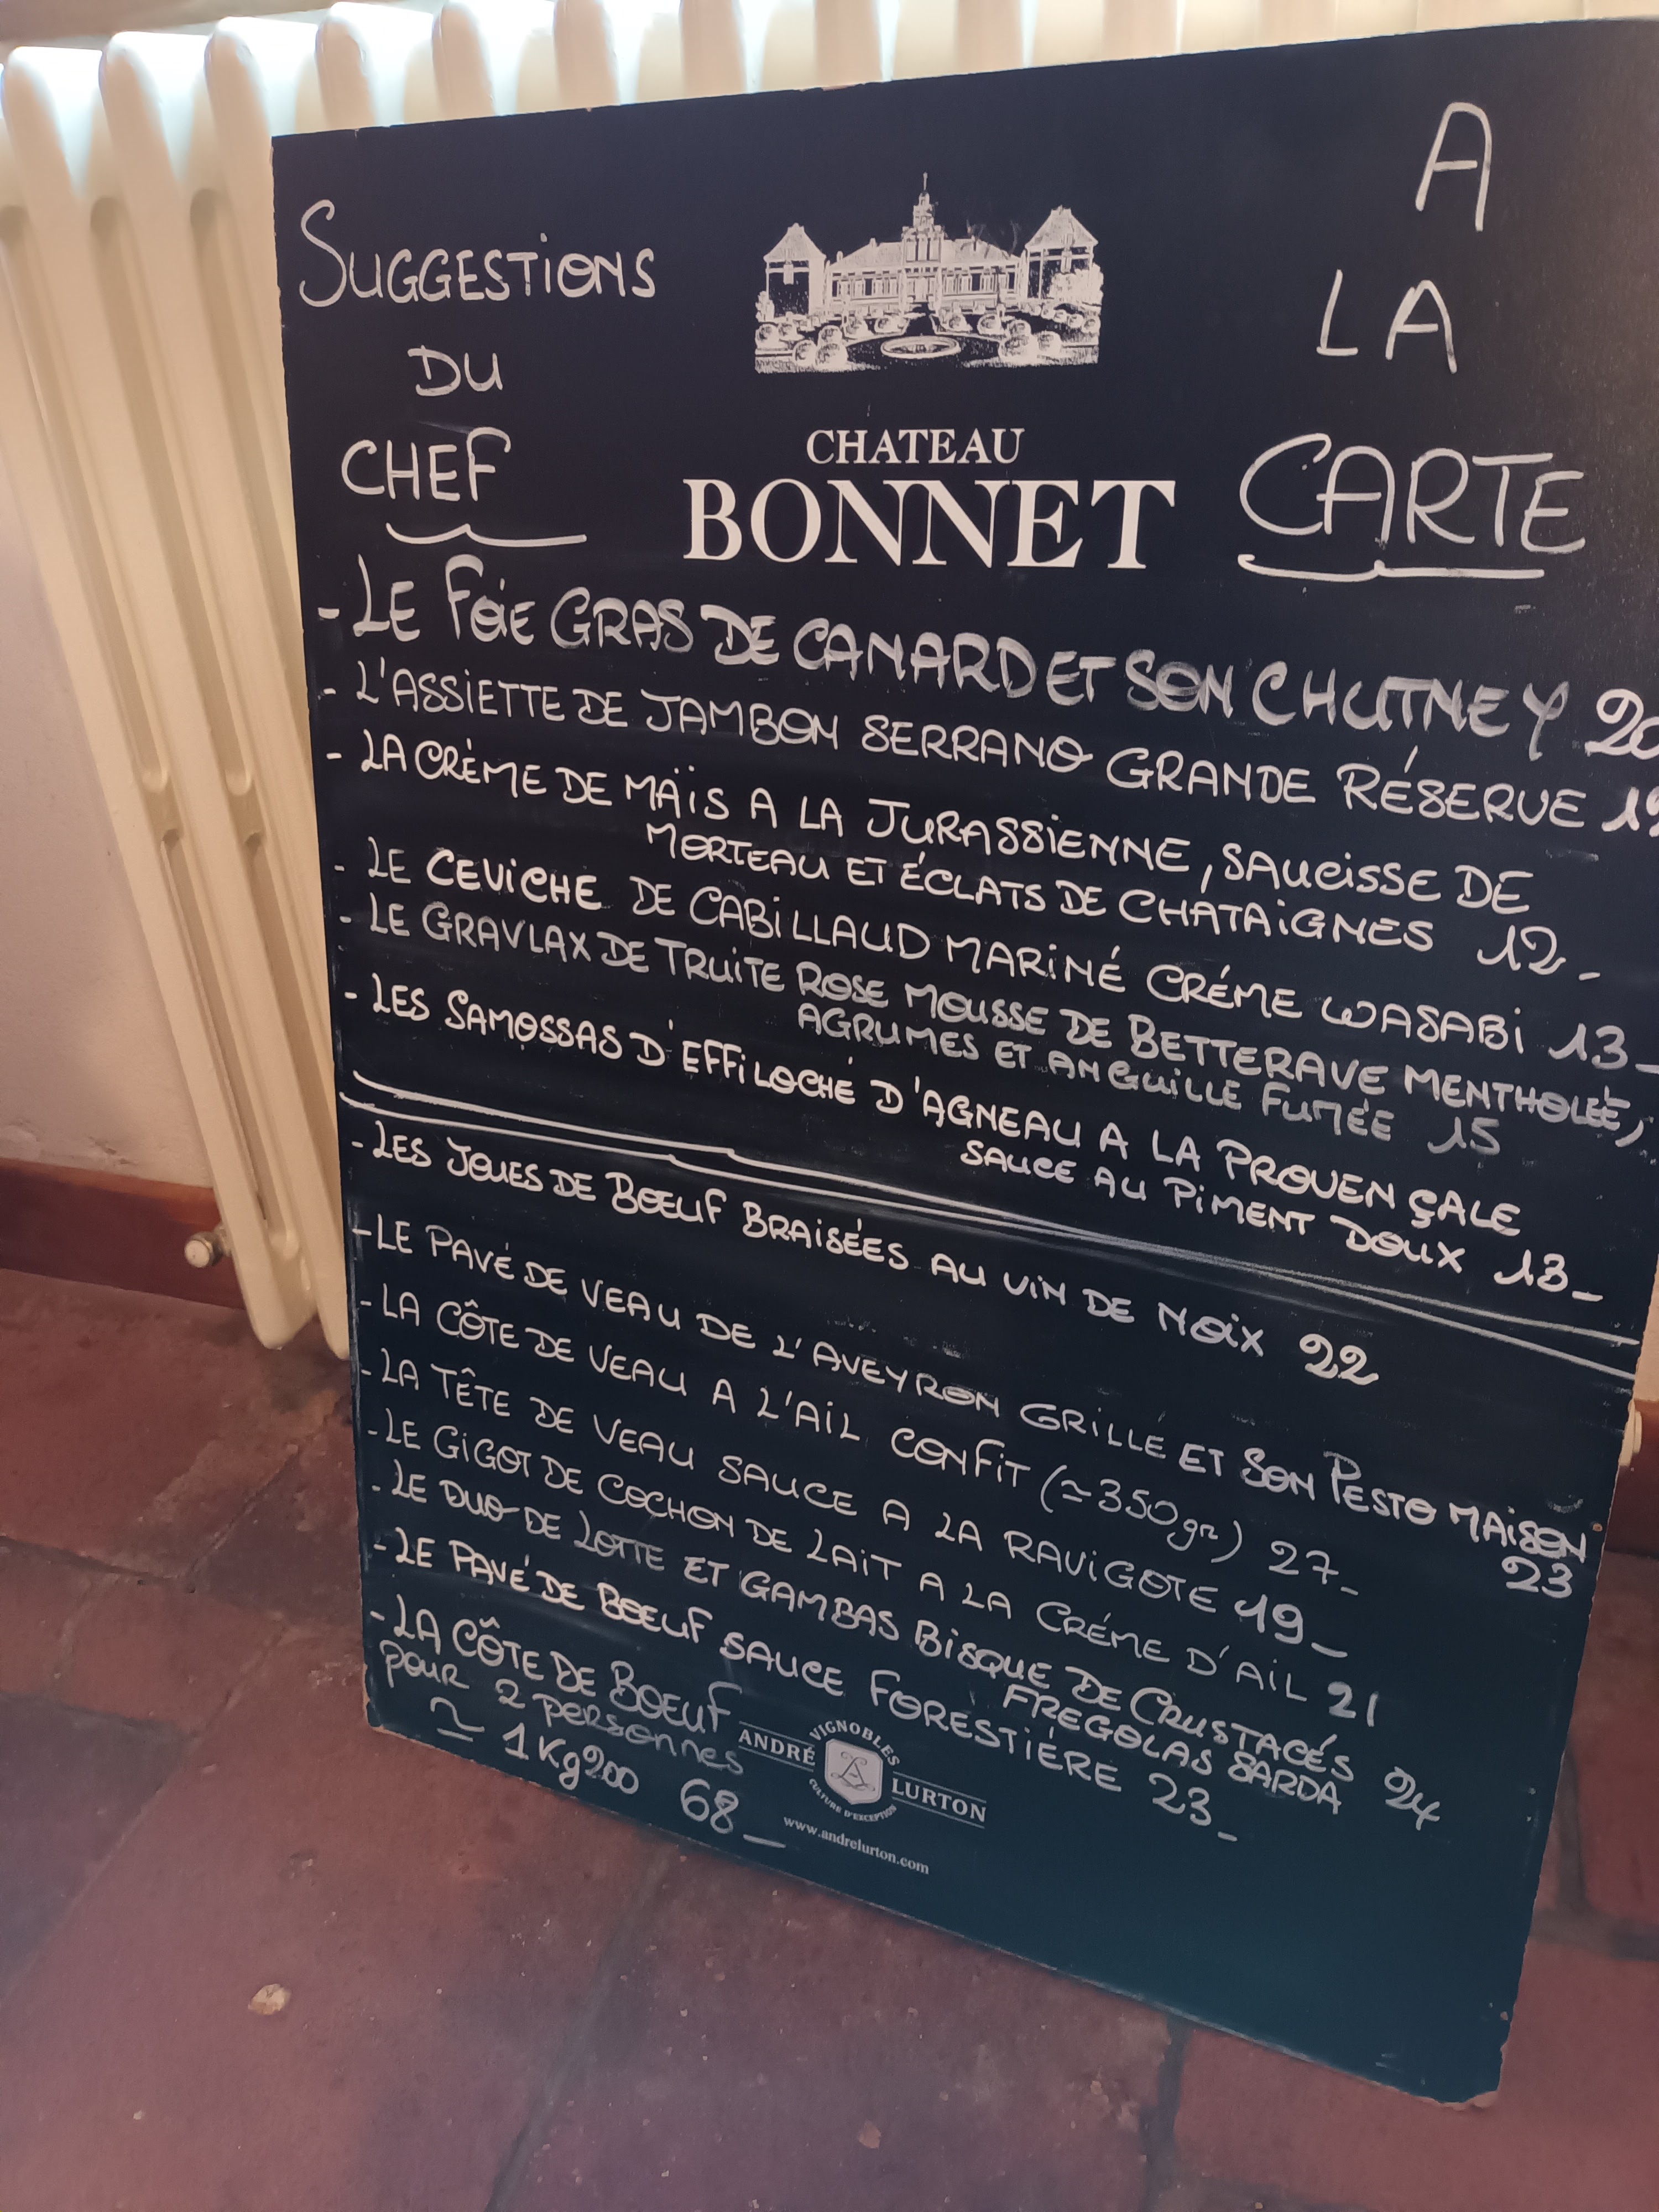 SUGGESTIONS
DU
CHEF
A
LA
CARTE
CHATEAU
BONNET
- LE FOIE GRAS DE CANARD ET SON CHUTNEY 20
- L'ASSIETTE DE JAMBON SERRANO GRANDE RÉSERVE
- LA CRÈME DE MAÏS A LA JURASSIENNE, SAUCISSE DE
MORTEAU ET ÉCLATS DE CHATAIGNES 12_
- LE CEVICHE DE CABILLAUD MARINÉ CRÉME WASABI 13_
- LE GRAVLAX DE TRUITE ROSE MOUSSE DE BETTERAVE MENTHOLÉE,
AGRUMES ET ANGUILLE FUMÉE 15
- LES SAMOSSAS D'EFFILOCHÉ D'AGNEAU A LA PROVENÇALE
SAUCE AU PIMENT DOUX 13_
- LES JOUES DE BOEUF BRAISÉES AU VIN DE NOIX 22
- LE PAVÉ DE VEAU DE L'AVEYRON GRILLÉ ET SON PESTO MAISON
23
- LA CÔTE DE VEAU A L'AIL CONFIT (≃350gr) 27_
- LA TÊTE DE VEAU SAUCE A LA RAVIGOTE 19_
- LE GIGOT DE COCHON DE LAIT A LA CRÉME D'AIL 21
- LE DUO DE LOTTE ET GAMBAS BISQUE DE CRUSTACÉS 24
FREGOLAS SARDA
- LE PAVÉ DE BOEUF SAUCE FORESTIÈRE 23_
- LA CÔTE DE BOEUF
pour 2 personnes
≃ 1Kg200 68_
VIGNOBLES
ANDRÉ LURTON
CULTURE D'EXCEPTION
www.andrelurton.com